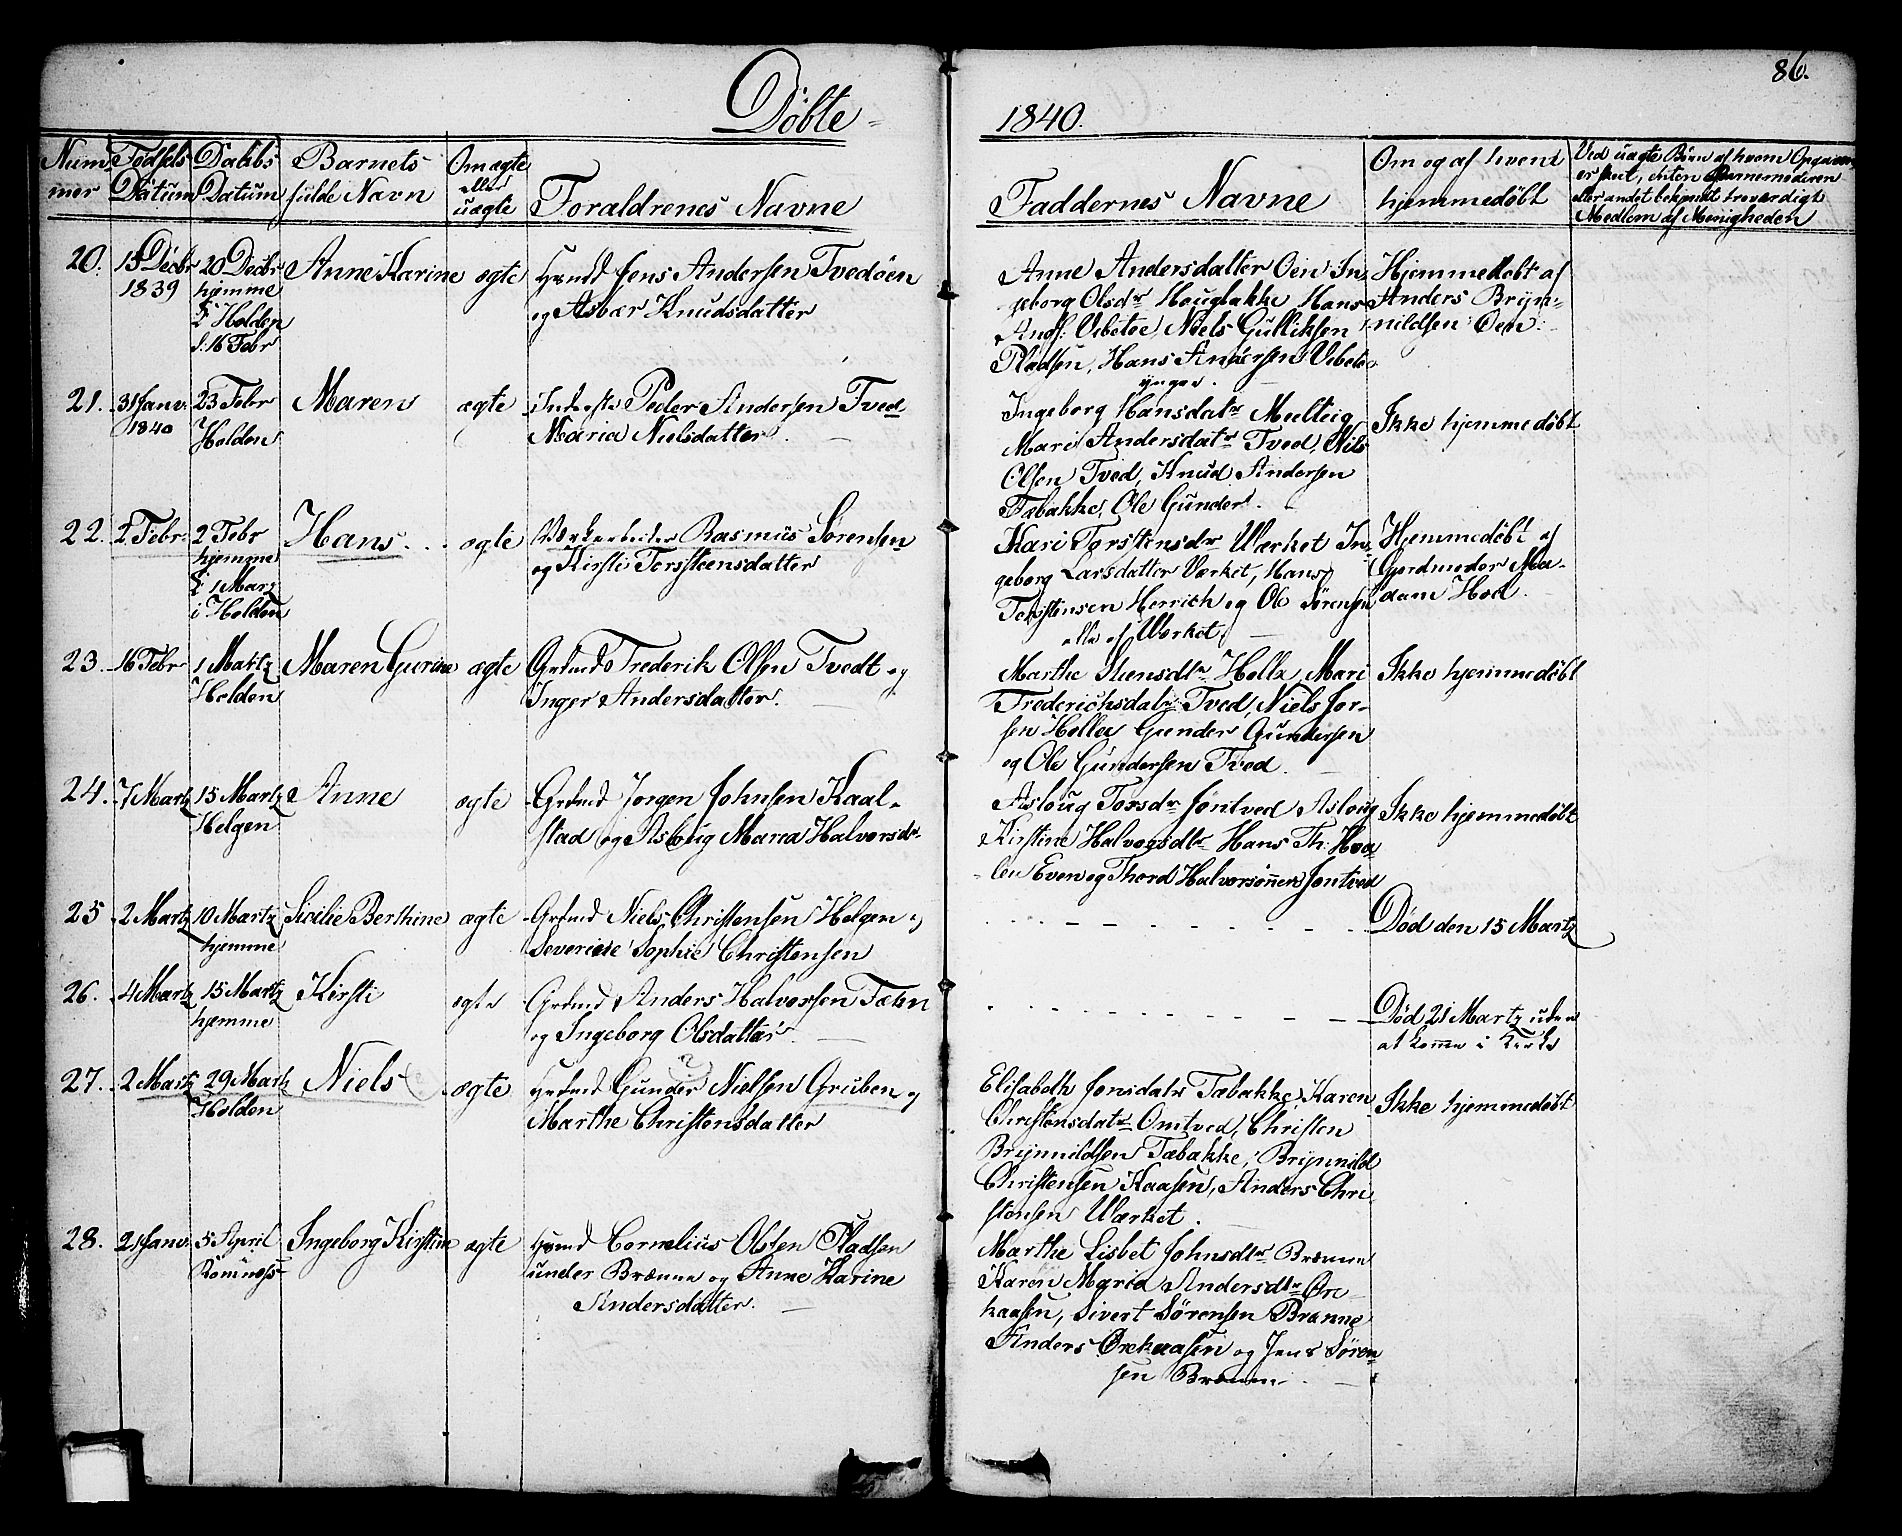 86.
Döbte
1840.
Num-
mer
Födsels
Datum
Daabs
Datum
Barnets
fulde Navn
Om ægte
eller
uægte
Foraldrenes Navne
Faddernes Navne
Om og af hvem
hjemmedøbt
Ved uægte Børn af hvem Opgaven
er skeet, enten Barnemoderen
eller andet bekjendt troværdigt
Medlem af Menigheden
20.
15 Decbr
1839
20 Decbr
hjemme
i Holden
d: 16 Febr
Anne Karine
ægte
Huusmd Jens Andersen Tvedøen
og Asbær Knudsdatter
Anne Andersdatter Oen In
geborg Olsdr Hougbakke Hans
Ands: Vibetoe, Niels Gulliksen
Pladsen, Hans Andersen Vibeto
yngre.
Hjemmedøbt af
Anders Bryn-
nildsen Oen
21.
31 Janv.
1840
23 Febr
Holden
Maren
ægte
Inderste Peder Andersen Tved
Maria Nielsdatter.
Ingeborg Hansdatr Melteig
Mari Andersdatr Tved, Nils
Olsen Tved, Knud Andersen
Tæbakke, Ole Gunders.
Ikke hjemmedøbt
22.
2 Febr.
2 Febr
hjemme
d 1 Marz
i Holden
Hans
ægte
Værkarbeider Rasmus Sørensen
og Kirsti Torsteensdatter
Kari Torstensdr Værket In
geborg Larsdatter Værket, Hans
Torstinsen Herrich og Ole Sørensen
alle af Værket
Hjemmedøbt af
Gjordmoder Ma-
dam Hoel.
23.
16 Febr
1 Martz
Holden
Maren Gurine
ægte
Grdmd Frederik Olsen Tvedt og
Inger Andersdatter.
Marthe Steensdtr Holla, Mari
Frederichsdatr Tved, Niels Jor-
sen Holla Gunder Gundersen
og Ole Gundersen Tved.
Ikke hjemmedøbt
24.
7 Martz
15 Martz
Helgen
Anne
ægte
Grdmd Jorgen Johnsen Kaal-
stad og Asloug Maria Halvorsdr
Asloug Torsdr Jontved Asloug
Kirstine Halvorsdtr Hans Th: Hva-
len Even og Thord Halvorsønner Jontved
Ikke hjemmedøbt
25
2 Martz
10 Martz
hjemme
Sicilie Berthine
ægte
Grdmd Niels Christensen Helgen og
Severine Sophie Christensen
Død den 15 Martz
26.
4 Martz
15 Martz
hjemme
Kirsti
ægte
Grdmd Anders Halvorsen Tæhn
og Ingeborg Olsdatter.
Død 21 Martz uden
at komme i Kirke
27.
2 Martz
29 Martz
Holden
Niels
ægte
Huusmd Gunder Nielsen Gruben og
Marthe Christensdatter
Elisabeth Jonsdatr Tæbakke, Karen
Christensdatr Omtved, Christen
Brynnildsen Tæbakke, Brynnild
Christensen Kaasen, Anders Chri
stensen Værket.
Ikke hjemmedøbt
28.
21 Janv.
5 April
Romnæs
Ingeborg Kirstine
ægte
Huusmd Cornelius Olsen Pladsen
under Brænne og Anne Karine
Andersdatter.
Marthe Lisbet Johnsdtr Brænne
Karen Maria Andersdtr Øre
kaasen, Sivert Sørensen Brænne
Anders Ørekaasen og Jens Søren
sen Brænne.